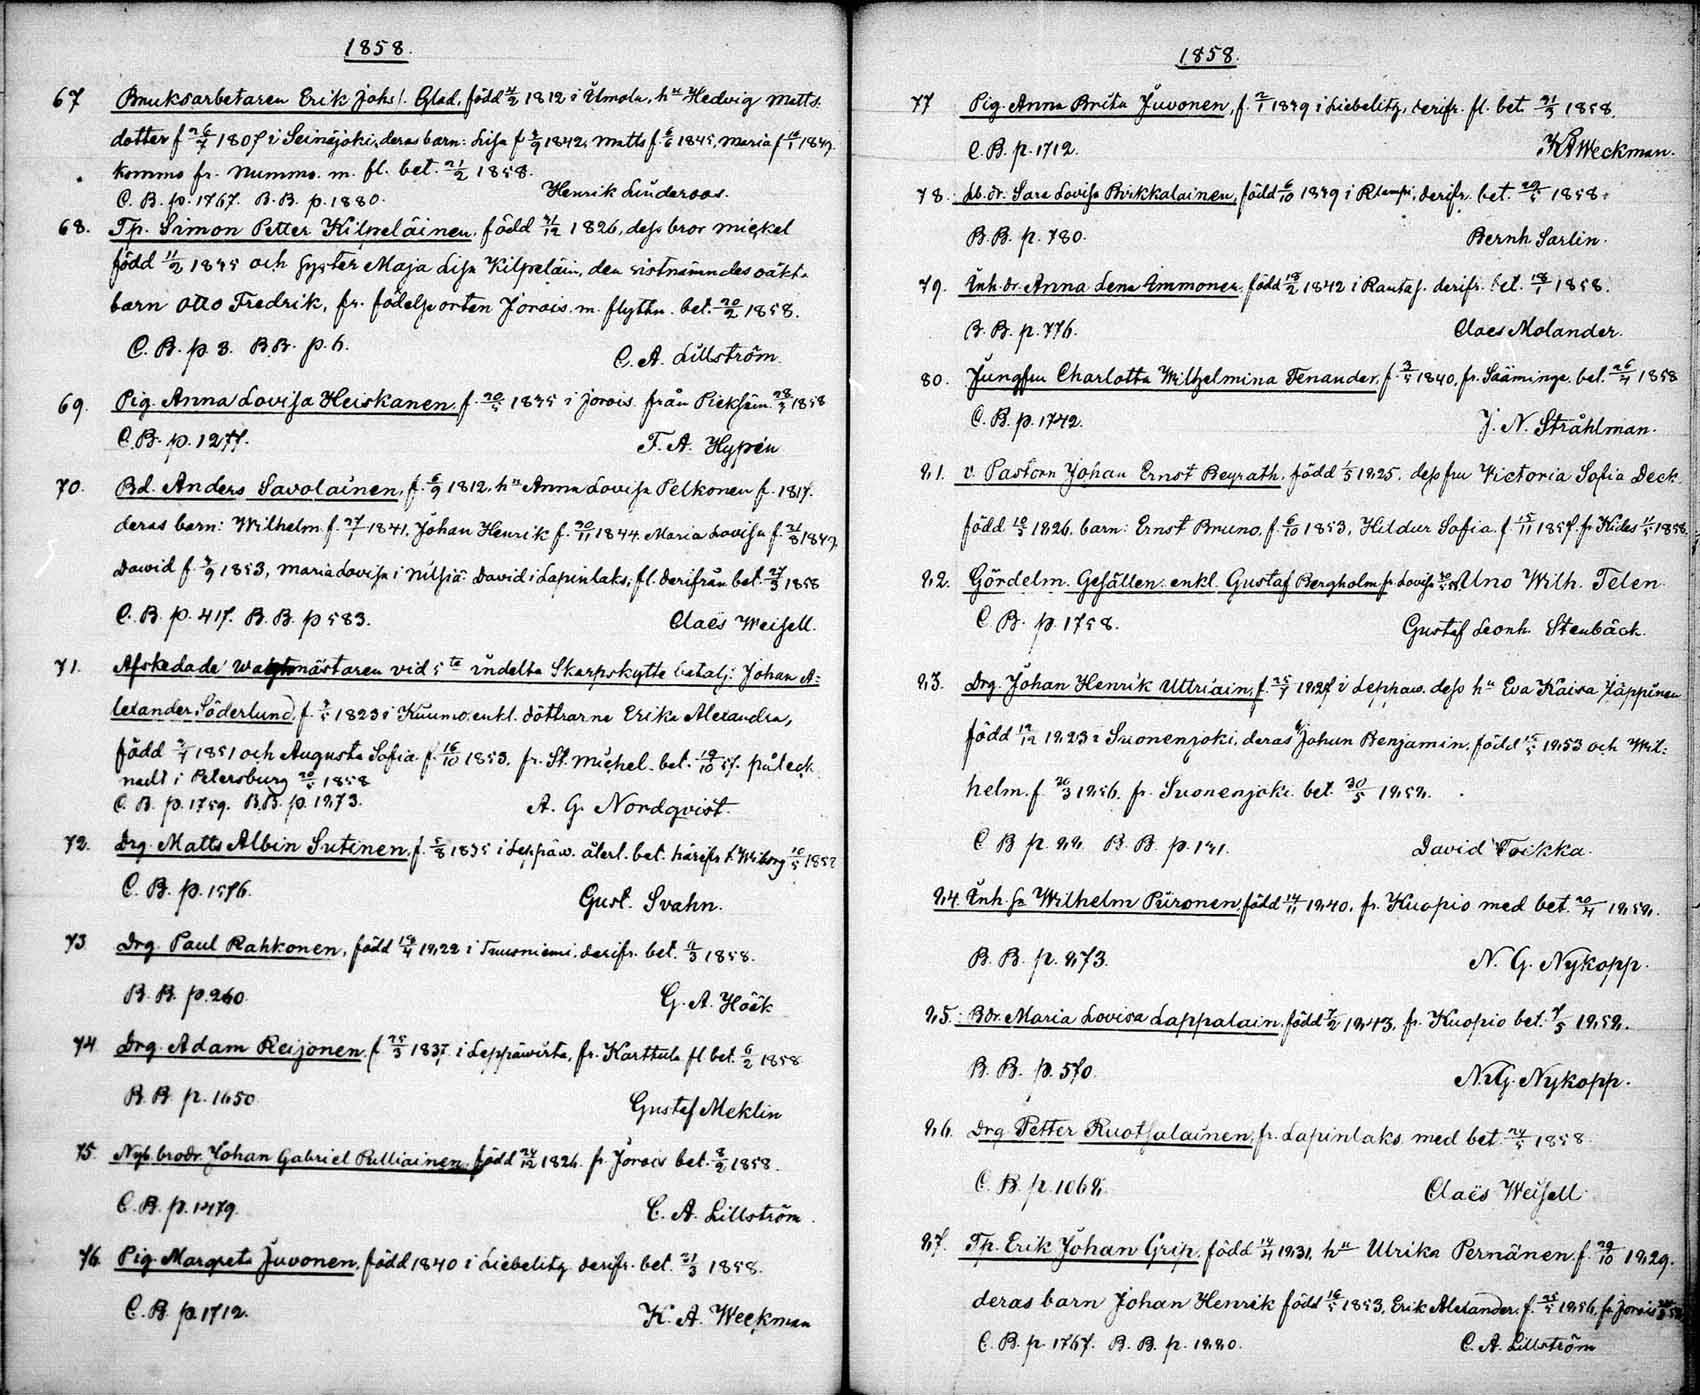 1858.
67 Bruksarbetaren Erik Johs/. Glad, född 11/2 1812 i Ilmola, hu Hedvig Matts.
dotter f 26/7 1807 i Seinäjoki, deras barn: Lisa f 2/9 1842, Matts f. 6/6 1845, Maria f 18/1 1849.
komma fr. Nummo. m. fl. bet. 21/2 1858.
C. B. p. 1767. B.B. p. 1880. Henrik Linderoos.
68. Tp. Simon Petter Kilpeläinen, född 31/12 1826, dess bror Mickel
född 11/2 1835 och syster Maja Lisa Kilpeläin, den sistnämndes oäkta
barn Otto Fredrik, fr. födelseorten Jorois m. flyttn. bet. 20/2 1858.
C. B. p. 3. B.B. p. 6. C. A. Lillström.
69. Pig. Anna Lovisa Heiskanen f. 20/5 1835 i Jorois från Pieksäm. 28/3 1858
C. B. p. 1277. F. A. Hypén
70. Bd. Anders Savolainen, f. 6/9 1812, hu Anna Lovisa Pelkonen f. 1817.
deras barn: Wilhelm f. 27/7 1841, Johan Henrik f. 20/11 1844, Maria Lovisa f. 21/8 1849,
David f. 3/9 1853, Maria Lovisa i Nilsiä David i Lapinlaks, fl. derifrån bet. 27/3 1858
C. B. p. 417. B. B. p 583. Claës Weisell.
71. Afskedade vid 5te indelta Skarpskytte batalj: Johan A=
lexander Söderlund, f. 3/5 1823 i Kuumo, enkl. döttrarne Erika Alexandra,
född 2/7 1851 och Augusta Sofia f. 16/10 1853, fr. St. Michel bet. 19/10 57. påteck
nadt i Petersburg 20/5 1858
C. B. p. 1759. B.B. p. 1273. A. G. Nordqvist.
72. Drg. Matts Albin Sutinen, f. 5/8 1835 i Leppäw. återl. bet. härifr. t. Wiborg 10/5 1858
C. B. p. 1576. Gust. Svahn.
73 Drg. Paul Rahkonen, född 19/4 1822 i Tuusniemi, derifr. bet. 9/3 1858.
B. B. p. 260. G. A. Höök
74 Drg. Adam Reijonen f 25/3 1837 i Leppäwirta, fr. Karttula fl bet. 6/2 1858
B. B. p. 1650. Gustaf Meklin
75. Nyb. brodr. Johan Gabriel Pulliainen född 24/12 1826 fr Jorois bet. 8/2 1858.
C. B. p. 1479. C. A. Lillström.
76 Pig. Margreta Juvonen, född 1840 i Liebelitz derifr. bet. 21/3 1858.
C. B. p. 1712. K. A. Weckman
1858.
77 Pig. Anna Brita Juvonen, f. 2/1 1839 i Liebelitz, derifr. fl. bet. 21/3 1858.
C. B. p. 1712. K A Weckman.
78. Lb. dr. Sara Lovisa Pirkkalainen, född 6/10 1839 i Rtampi, derifr. bet. 29/5 1858.
B. B. p. 780. Bernh Sarlin.
79. Inh. dr. Anna Lena Immonen, född 18/2 1842 i Rautas. derifr. bet. 18/1 1858.
B. B. p. 776. Claes Molander.
80. Jungfru Charlotta Wilhelmina Fenander, f. 3/5 1840, fr. Sääminge, bet. 26/4 1858
C. B. p. 1742. J. N. Stråhlman.
81. v. Pastorn Johan Ernst Beyrath, född 1/5 1825. dess fru Victoria Sofia Deck
född 10/5 1826, barn: Ernst Bruno, f. 6/10 1853, Hildur Sofia f. 15/11 1857. fr Kides 11/5 1858.
82. Gördelm. Gesällen, enkl. Gustaf Bergholm fr Lovisa Uno Wilh. Telen
C B. p. 1758. Gustaf Leonh. Stenbäck.
83. Drg. Johan Henrik Uttriain, f. 25/7 1827 i Leppaw. dess hu Eva Kaisa Jäppinen
född 19/12 1823 i Suonenjoki, deras b Johan Benjamin, född 15/5 1853 och Wil=
helm f 26/3 1856. fr. Suonenjoki bet. 30/5 1858.
C B p. 88 B. B. p. 191. David Toikka.
84. Inh. sn Wilhelm Piironen, född 14/11 1840, fr. Kuopio med bet. 20/4 1858.
B. B. p. 873. N. G. Nykopp.
85. Bdr. Maria Lovisa Lappalain, född 2/2 1843, fr. Kuopio bet. 7/5 1858.
B. B. p. 570. N. G. Nykopp.
86. Drg Petter Ruotsalainen, fr. Lapinlaks med bet. 24/5 1858.
C. B. p. 1068. Claës Weisell
87. Tp. Erik Johan Grip, född 14/4 1831, hu Ulrika Pernänen f. 29/10 1829.
deras barn Johan Henrik född 16/5 1853, Erik Alexander f. 25/5 1856, fr Jorois
C. B. p. 1767. B. B. p. 1880. C. A. Lillström